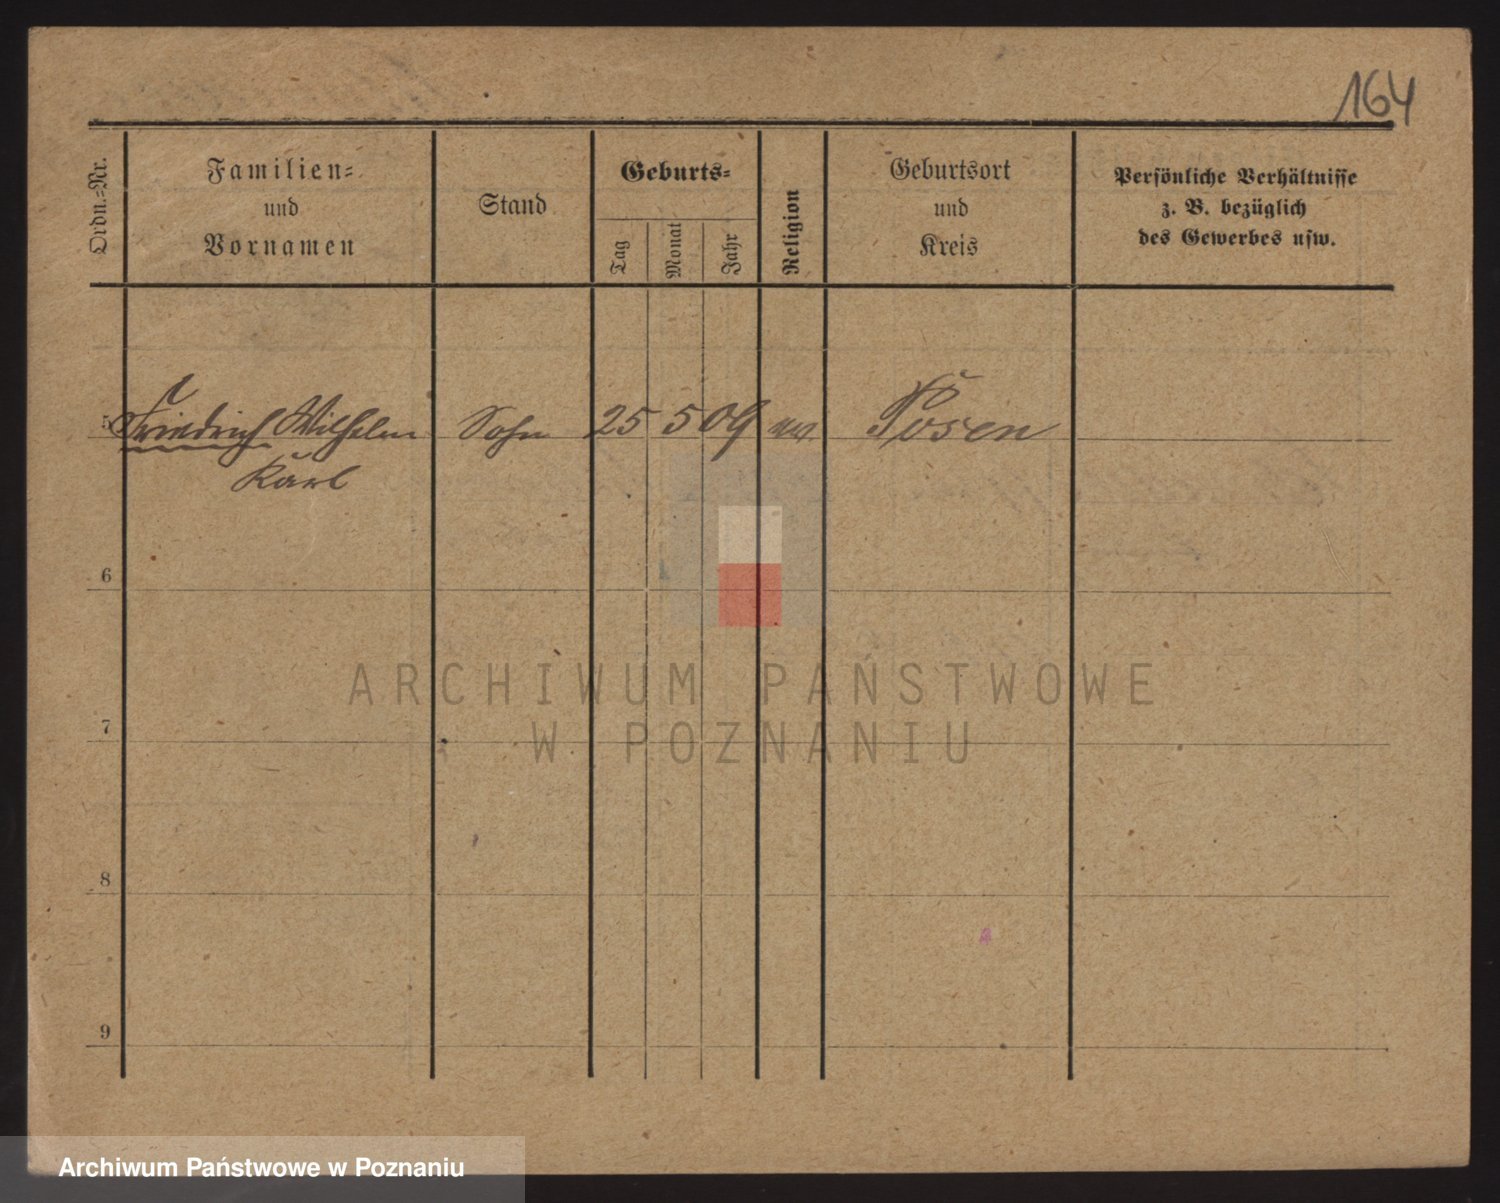 164
Ordn.-Nr.
Familien-
und
Vornamen
Stand
Geburts-
Tag
Monat
Jahr
Religion
Geburtsort
und
Kreis
Persönliche Verhältnisse
z. B. bezüglich
des Gewerbes usw.
5 Friedrich Wilhelm Sohn 25 5 09 ev Posen
Karl
6
7
8
9
ARCHIWUM PAŃSTWOWE
W POZNANIU
Archiwum Państwowe w Poznaniu